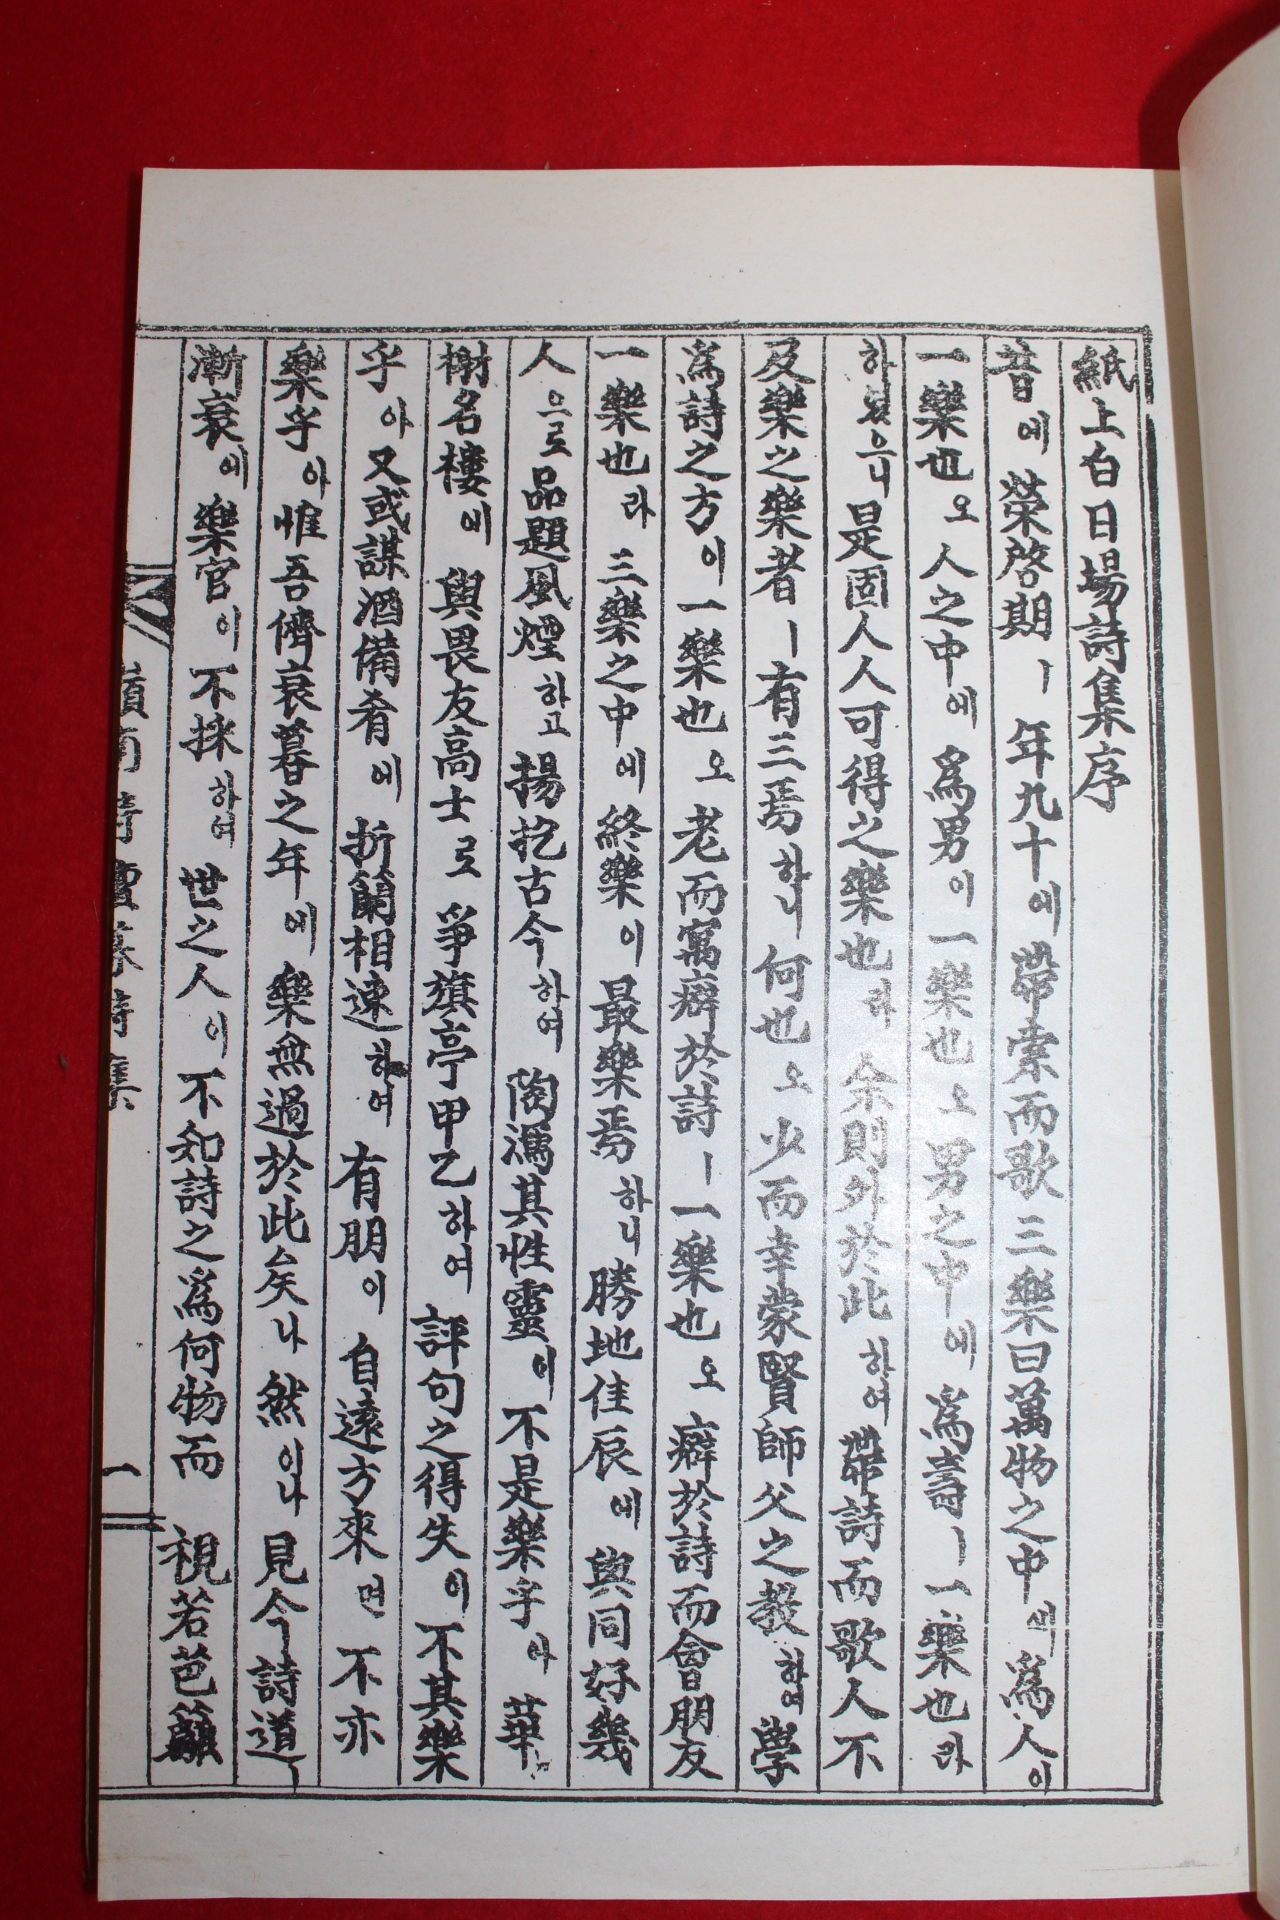 紙上白日場詩集序
昔에 榮啓期ㅣ 年九十에 帶索而歌三樂曰萬物之中에 爲人이
一樂也오 人之中에 爲男이 一樂也오 男之中에 爲壽ㅣ 一樂也라
하얏으니 是固人人可得之樂也라 余則外於此하여 帶詩而歌人不
及樂之樂者ㅣ 有三焉하니 何也오 少而幸蒙賢師父之敎하여 學
爲詩之方이 一樂也오 老而寓癖於詩ㅣ 一樂也오 癖於詩而會朋友
一樂也라 三樂之中에 終樂이 最樂焉하니 勝地佳辰에 與同好幾
人으로 品題風煙하고 揚扢古今하여 陶瀉其性靈이 不是樂乎아 華
榭名樓에 與畏友高士로 爭旗亭甲乙하여 評句之得失이 不其樂
乎아 又或謀酒備肴에 折蘭相速하여 有朋이 自遠方來면 不亦
樂乎아 惟吾儕衰暮之年에 樂無過於此矣나 然이나 見今詩道ㅣ
漸衰에 樂官이 不採하여 世之人이 不知詩之爲何物而 視若芭籬
詩集
一